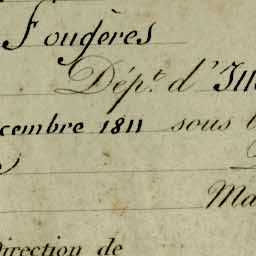 Fougères
Dép.t d'Ill
cembre 1811 sous
Ma
Direction de